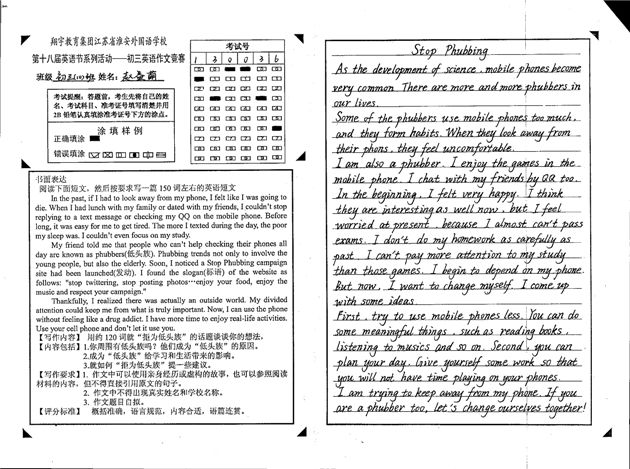 翔宇教育集团江苏省淮安外国语学校
第十八届英语节系列活动——初三英语作文竞赛
班级 姓名:
考试号
1 3 0 0 3 6
考试提醒:答题前,考生先将自己的姓
名、考试科目、准考证号填写清楚并用
2B铅笔认真填涂准考证号下方的涂点。
涂填样例
正确填涂
错误填涂
书面表达
阅读下面短文,然后按要求写一篇150词左右的英语短文
In the past, if I had to look away from my phone, I felt like I was going to
die. When I had lunch with my family or dated with my friends, I couldn't stop
replying to a text message or checking my QQ on the mobile phone. Before
long, it was easy for me to get tired. The more I texted during the day, the poor
my sleep was. I couldn't even focus on my study.
My friend told me that people who can't help checking their phones all
day are known as phubbers(低头族). Phubbing trends not only to involve the
young people, but also the elderly. Soon, I noticed a Stop Phubbing campaign
site had been launched(发动). I found the slogan(标语) of the website as
follows: "stop twittering, stop posting photos…enjoy your food, enjoy the
music and respect your campaign."
Thankfully, I realized there was actually an outside world. My divided
attention could keep me from what is truly important. Now, I can use the phone
without feeling like a drug addict. I have more time to enjoy real-life activities.
Use your cell phone and don't let it use you.
【写作内容】 用约120词就“拒为低头族”的话题谈谈你的想法,
【内容包括】1.你周围有低头族吗?他们成为“低头族”的原因。
2.成为“低头族”给学习和生活带来的影响。
3.就如何“拒为低头族”提一些建议。
【写作要求】1. 作文中可以使用亲身经历或虚构的故事,也可以参照阅读
材料的内容,但不得直接引用原文的句子。
2. 作文中不得出现真实姓名和学校名称。
3. 作文题目自拟。
【评分标准】 概括准确,语言规范,内容合适,语篇连贯。
Stop Phubbing
As the development of science, mobile phones become
very common. There are more and more phubbers in
our lives.
Some of the phubbers use mobile phones too much,
and they form habits. When they look away from
their phons, they feel uncomfortable.
I am also a phubber. I enjoy the games in the
mobile phone. I chat with my friends by QQ too.
In the beginning, I felt very happy. I think
they are interesting as well now, but I feel
worried at present, because I almost can't pass
exams. I don't do my homework as carefully as
past. I can't pay more attention to my study
than those games. I begin to depend on my phone.
But now, I want to change myself. I come up
with some ideas.
First, try to use mobile phones less. You can do
some meaningful things, such as reading books,
listening to musics and so on. Second, you can
plan your day. Give yourself some work so that
you will not have time playing on your phones.
I am trying to keep away from my phone. If you
are a phubber too, let's change ourselves together!